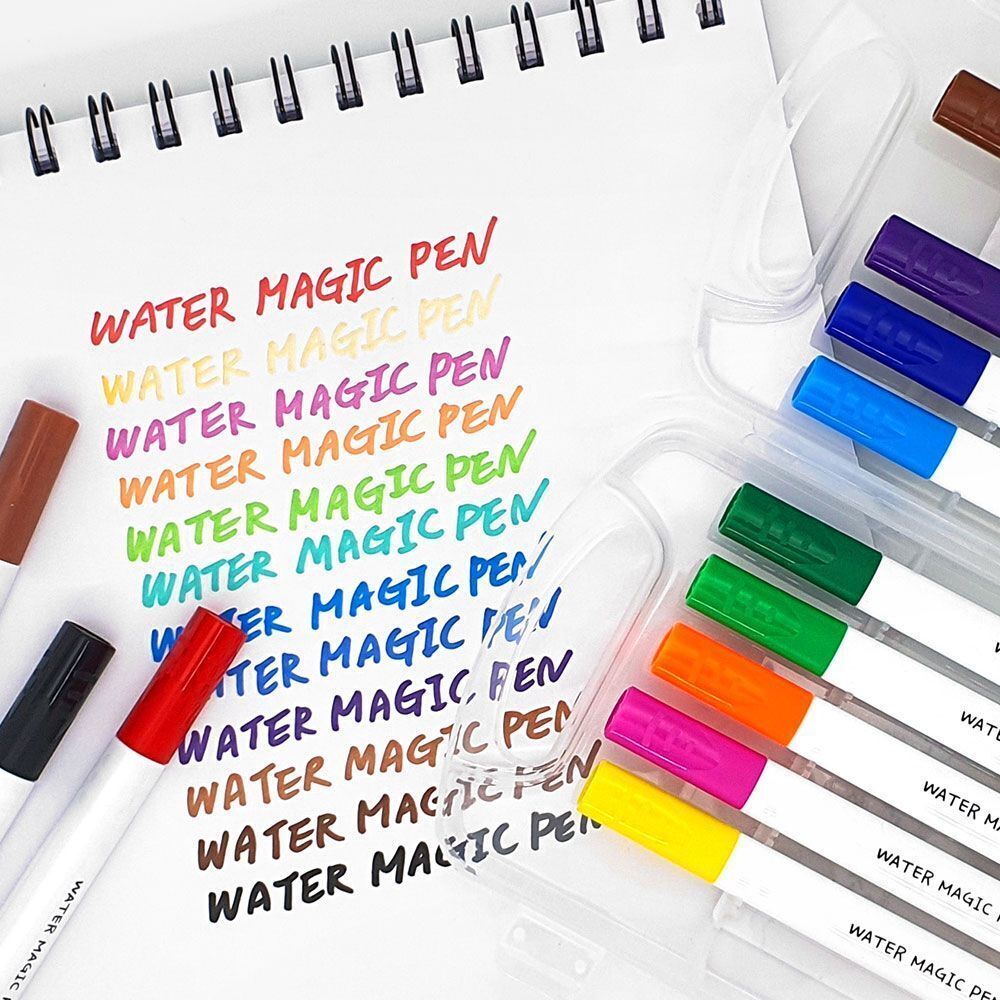 WATER MAGIC PEN
WATER MAGIC PEN
WATER MAGIC PEN
WATER MAGIC PEN
WATER MAGIC PEN
WATER MAGIC PEN
WATER MAGIC PEN
WATER MAGIC PEN
WATER MAGIC PEN
WATER MAGIC PEN
WATER MAGIC PEN
WATER MAGIC PEN
WATER MAGIC
WATER
WATER M
WATER MAGIC
WATER MAGIC PEN